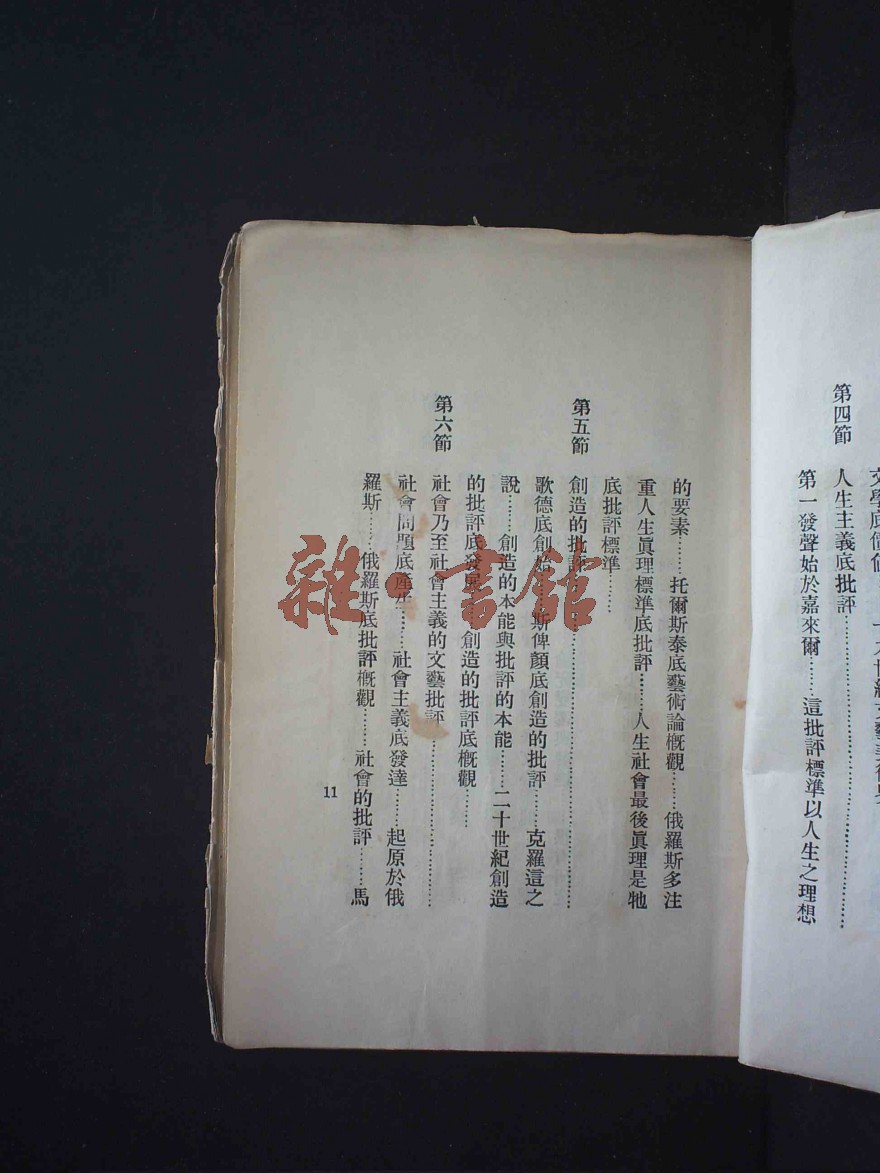 第四節
人生主義底批評……………………
第一發聲始於嘉來爾……這批評標準以人生之理想
的要素………托爾斯泰底藝術論概觀………俄羅斯多注
重人生眞理標準底批評………人生社會最後眞理是牠
底批評標準………
第五節
創造的批評……………………
歌德底創始………斯俾顏底創造的批評………克羅這之
說………創造的本能與批評的本能………二十世紀創造
的批評底發展………創造的批評底概觀………
第六節
社會乃至社會主義的文藝批評……………………
社會問題底產生………社會主義底發達………起原於俄
羅斯………俄羅斯底批評概觀………社會的批評………馬
11
雜·書館